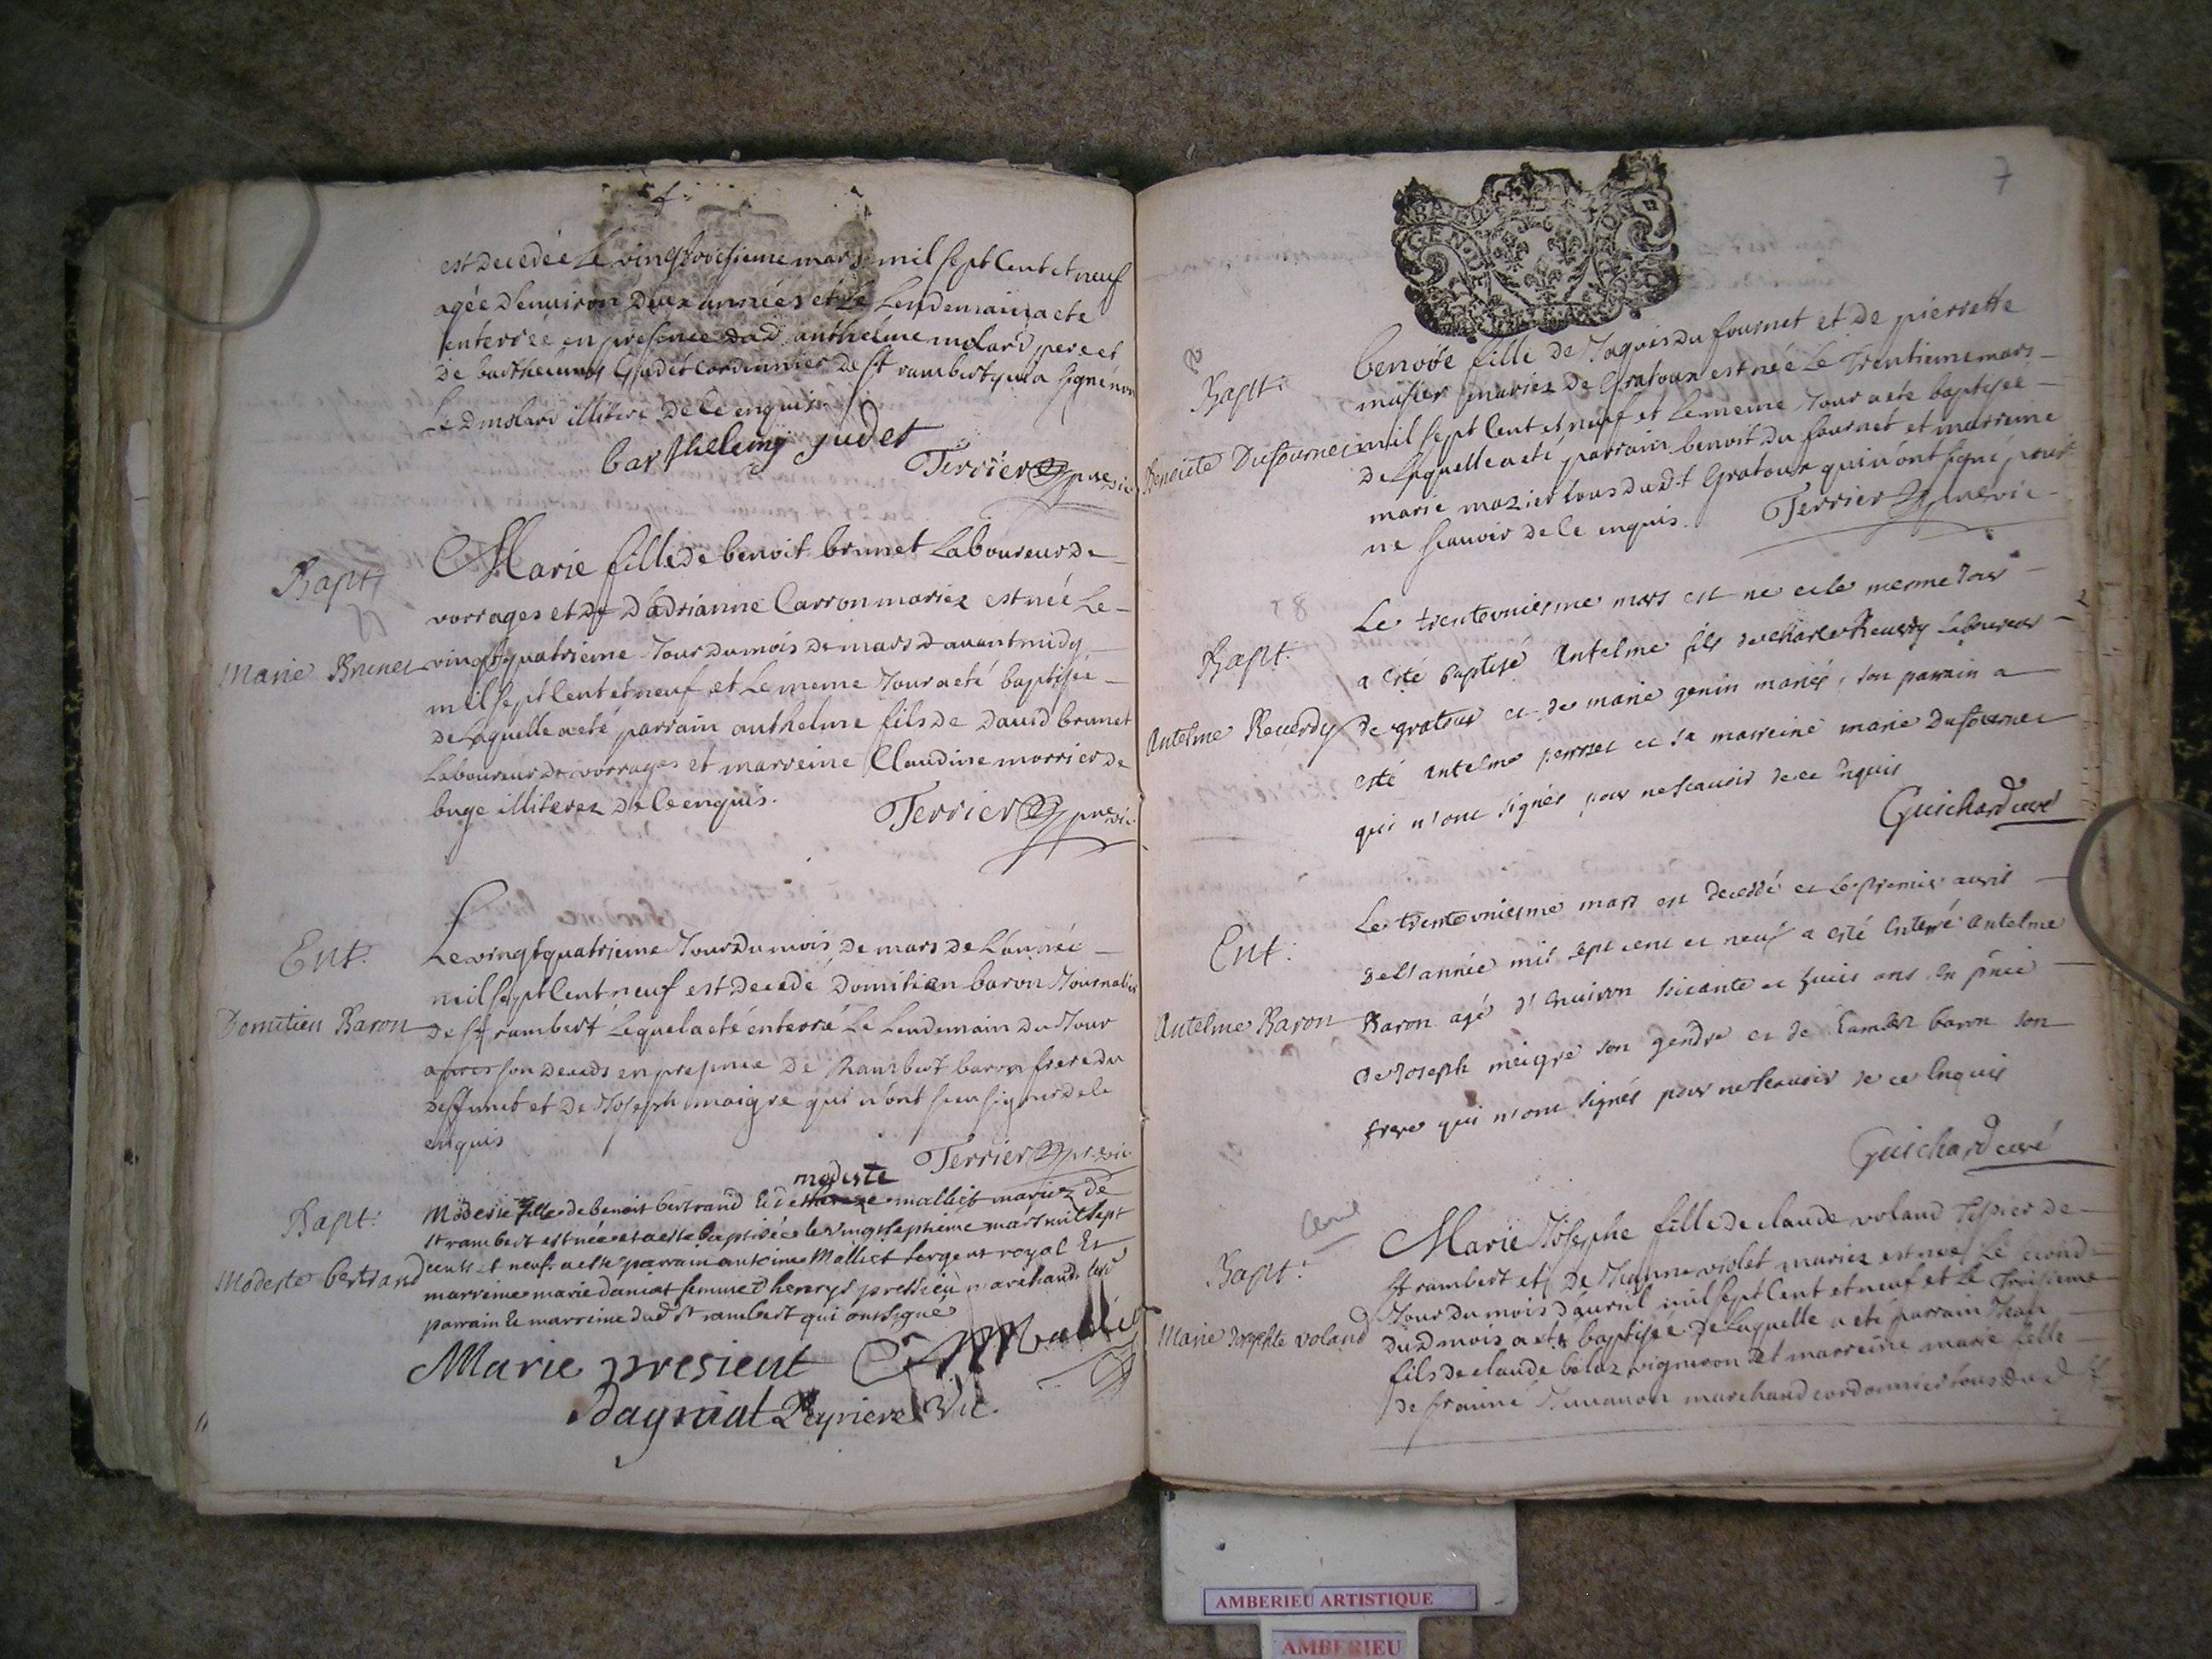 est decedée le vingtroisieme mars mil sept Cent et neuf
agée denuiron deux années et le Lendemain a eté
enterrée en presence dud anthelme molard pere et
de barthelemy Gudet Cordonnier de st rambert qui a signé non
Led molard illitere de ce enquis.
barthelemy judet
Terrier pre vic
Bapt
Marie Brunet
Marie fille de benoit brunet Laboureur de
vorrages et de d'adrianne Carron mariez est née Le
vingtquatrieme Jour du mois de mars d'auant midy
mil sept Cent et neuf et Le meme Jour a eté baptisée
de Laquelle a eté parrain anthelme fils de david brunet
Laboureur de vorrages et marreine Claudine morrier de
buge illiterez de ce enquis.
Terrier pre vic
Ent.
Domitien Baron
Le vingtquatrieme Jour du mois de mars de L'année
mil sept Cent neuf est decedé domitien baron Journalier
de st rambert Lequel a eté enterré Le Lendemain du Jour
apres son deceds en presence de Rambert baron frere du
deffunct et de Joseph maigre qui n'ont sceu signer de ce
enquis
Terrier pre vic
Bapt:
Modeste bertrand
modeste
Modeste fille de benoit bertrand et de mallict mariez de
st rambert est née et a esté baptisée le vingtseptieme mars mil sept
cents et neuf. a esté parrain antoine Mallict sergent royal Et
marreine marie daniat femme d henrys pressieu marchand
parrain et marreine dud st rambert qui ont signé
Marie presieut
Dagniat Peyriere Vic.
7
GEN
Bapt:
Benoite Dufournet
benoite fille de Jaques du fournet et de pierrette
masier mariez de Gratoux est née Le trentieme mars
mil sept Cent et neuf et Le meme Jour a eté baptisée
de Laquelle a eté parrain benoit du fournet et marreine
marie mazier tous dudt Gratoux qui n'ont signé pour
ne scauoir de ce enquis.
Terrier pre vic
Bapt.
Antelme Reuerdy
Le trentevniesme mars est né et le mesme Jour
a esté baptisé Antelme fils de Charle Reuerdy Laboureur
de gratoux et de marie genin mariés, son parrain a
esté Antelme perret et sa marreine marie Dufournet
qui n'ont signés pour ne scauoir de ce Enquis
Guichard curé
Ent.
Antelme Baron
Le trentevniesme mars est decedé et Le premier auril
de L'année mil sept cent et neuf a esté Enterré Antelme
Baron agé d'Enuiron soixante et huit ans En pnce
de Joseph meigre son gendre et de baron son
frere qui n'ont signés pour ne scauoir de ce Enquis
Guichard curé
Bapt:
Marie Josephte Voland
Marie Josephe fille de claude voland de
st rambert et de Jeanne violet mariez est née Le second
Jour du mois d'auril mil sept Cent et neuf et Le troisieme
dud mois a eté baptisée de Laquelle a eté parrain Jean
fils de claude beloz vigneron et marreine marie fille
de marchand cordonnier tous dud st
AMBERIEU ARTISTIQUE
AMBERIEU